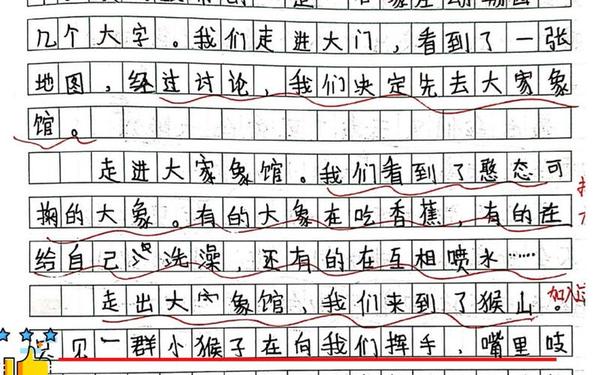 几个大字。我们走进大门，看到了一张
地图，经过讨论，我们决定先去大家象
馆。
走进大家象馆。我们看到了憨态可
掬的大象。有的大象在吃香蕉，有的在
给自己洗澡，还有的在互相喷水……
走出大象馆，我们来到了猴山。加入
见一群小猴子在向我们挥手，嘴里吱